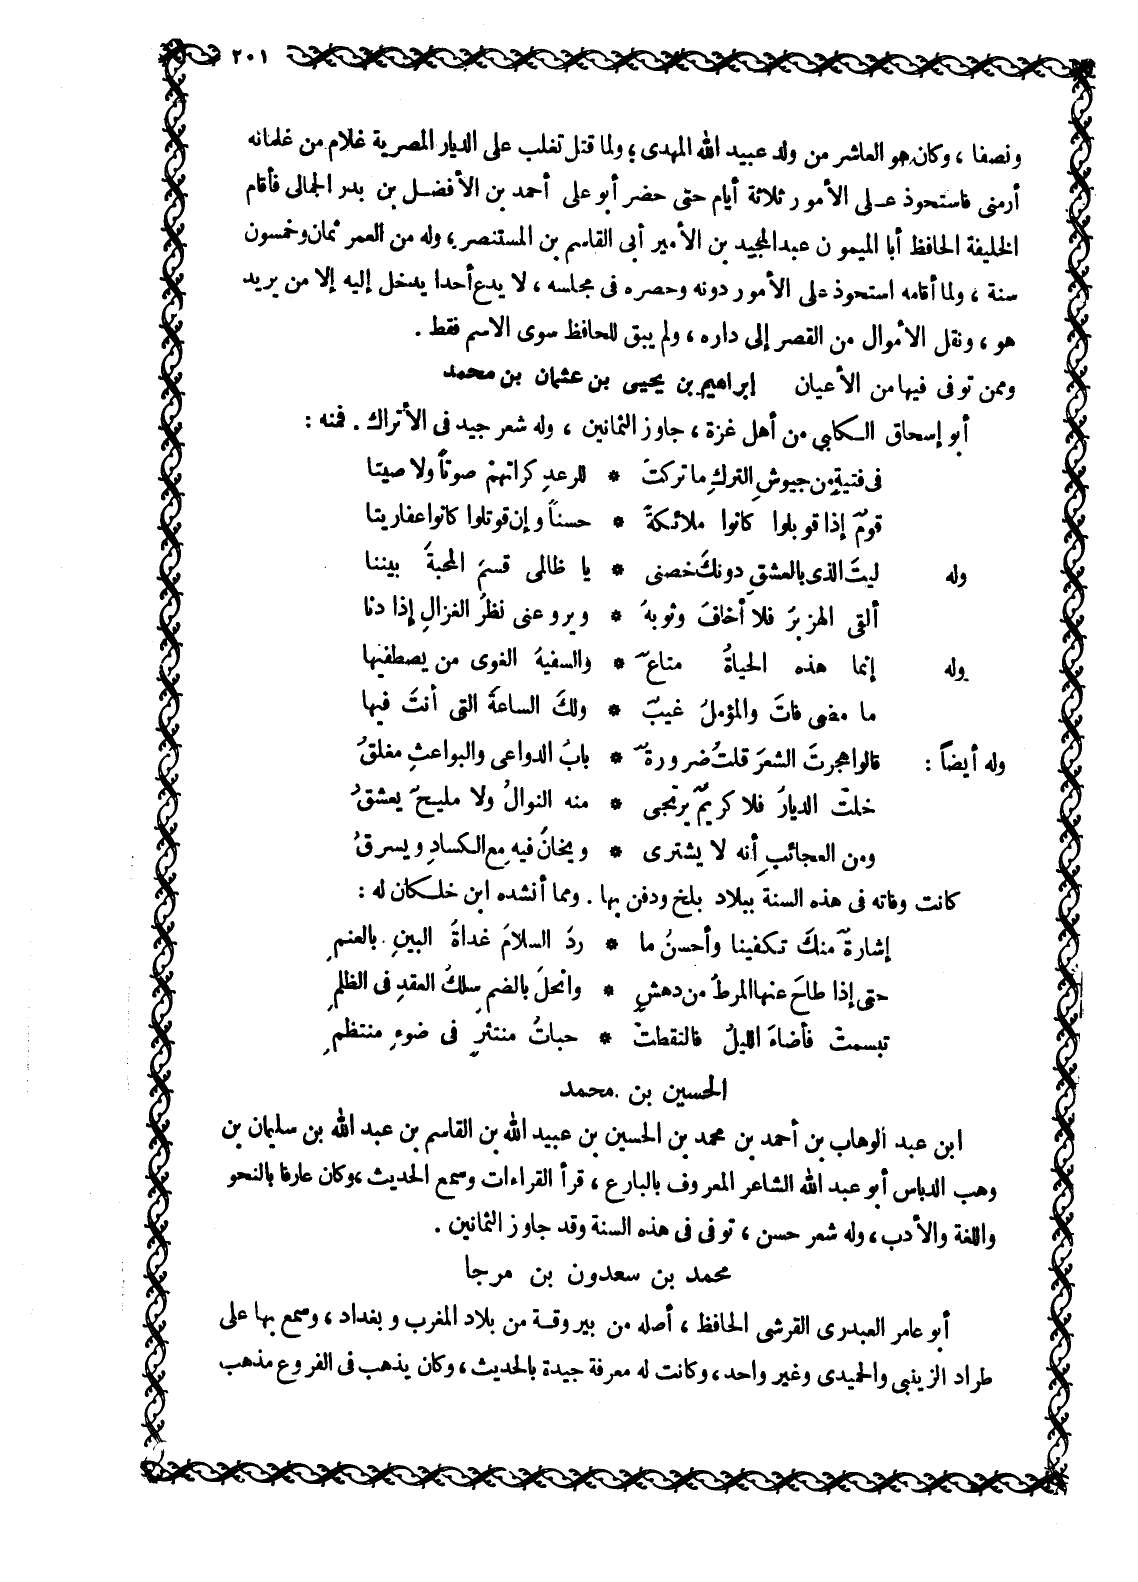 ٢٠١
ونصفا ، وكان هو العاشر من ولد عبيد الله المهدى ؛ ولما قتل تغلب على الديار المصرية غلام من غلمانه
أرمنى فاستحوذ على الأمور ثلاثة أيام حتى حضر أبو على أحمد بن الأفضل بن بدر الجمالى فأقام
الخليفة الحافظ أبا الميمون عبد المجيد بن الأمير أبى القاسم بن المستنصر ؛ وله من العمر ثمان وخمسون
سنة ، ولما أقامه استحوذ على الأمور دونه وحصره فى مجلسه ، لا يدع أحدا يدخل إليه إلا من يريد
هو ، ونقل الأموال من القصر إلى داره ، ولم يبق للحافظ سوى الاسم فقط .
وممن توفى فيها من الأعيان إبراهيم بن يحيى بن عثمان بن محمد
أبو إسحاق الكلبي من أهل غزة ، جاوز الثمانين ، وله شعر جيد فى الأتراك . فمنه :
فى فتيةٍ من جيوشِ التركِ ما تركتْ * للرعدِ كراتهمْ صوتاً ولا صيتا
قومٌ إذا قوبلوا كانوا ملائكةً * حسناً وإن قوتلوا كانوا عفاريتا
وله ليتَ الذى بالعشقِ دونكَ خصنى * يا ظالمى قسمَ المحبةَ بيننا
ألقى الهزبرَ فلا أخافَ وثوبهُ * ويروعنى نظرُ الغزالِ إذا دنا
وله إنما هذه الحياةُ متاعٌ * والسفيهُ الغوى من يصطفيها
ما مضى فاتَ والمؤملُ غيبٌ * ولكَ الساعةُ التى أنتَ فيها
وله أيضاً : قالوا هجرتَ الشعرَ قلتُ ضرورةٌ * بابُ الدواعى والبواعثِ مغلقُ
خلتْ الديارُ فلا كريمٌ يرتجى * منه النوالُ ولا مليحٌ يعشقُ
ومن العجائبِ أنه لا يشترى * ويخانُ فيهِ مع الكسادِ ويسرقُ
كانت وفاته فى هذه السنة ببلاد بلخ ودفن بها . ومما أنشده ابن خلكان له :
إشارةٌ منكَ تكفينا وأحسنُ ما * ردَ السلامَ غداةُ البينِ بالعنمِ
حتى إذا طاحَ عنها المرطُ من دهشٍ * وانحلَ بالضمِ سلكُ العقدِ فى الظلمِ
تبسمتْ فأضاءَ الليلُ فالتقطتْ * حباتُ منتثرٍ فى ضوءِ منتظمِ
الحسين بن محمد
ابن عبد الوهاب بن أحمد بن محمد بن الحسين بن عبيد الله بن القاسم بن عبد الله بن سليمان بن
وهب الدباس أبو عبد الله الشاعر المعروف بالبارع ، قرأ القراءات وسمع الحديث ، وكان عارفا بالنحو
واللغة والأدب ، وله شعر حسن ، توفى فى هذه السنة وقد جاوز الثمانين .
محمد بن سعدون بن مرجا
أبو عامر العبدرى القرشى الحافظ ، أصله من بيروقة من بلاد المغرب وبغداد ، وسمع بها على
طراد الزينبى والحميدى وغير واحد ، وكانت له معرفة جيدة بالحديث ، وكان يذهب فى الفروع مذهب